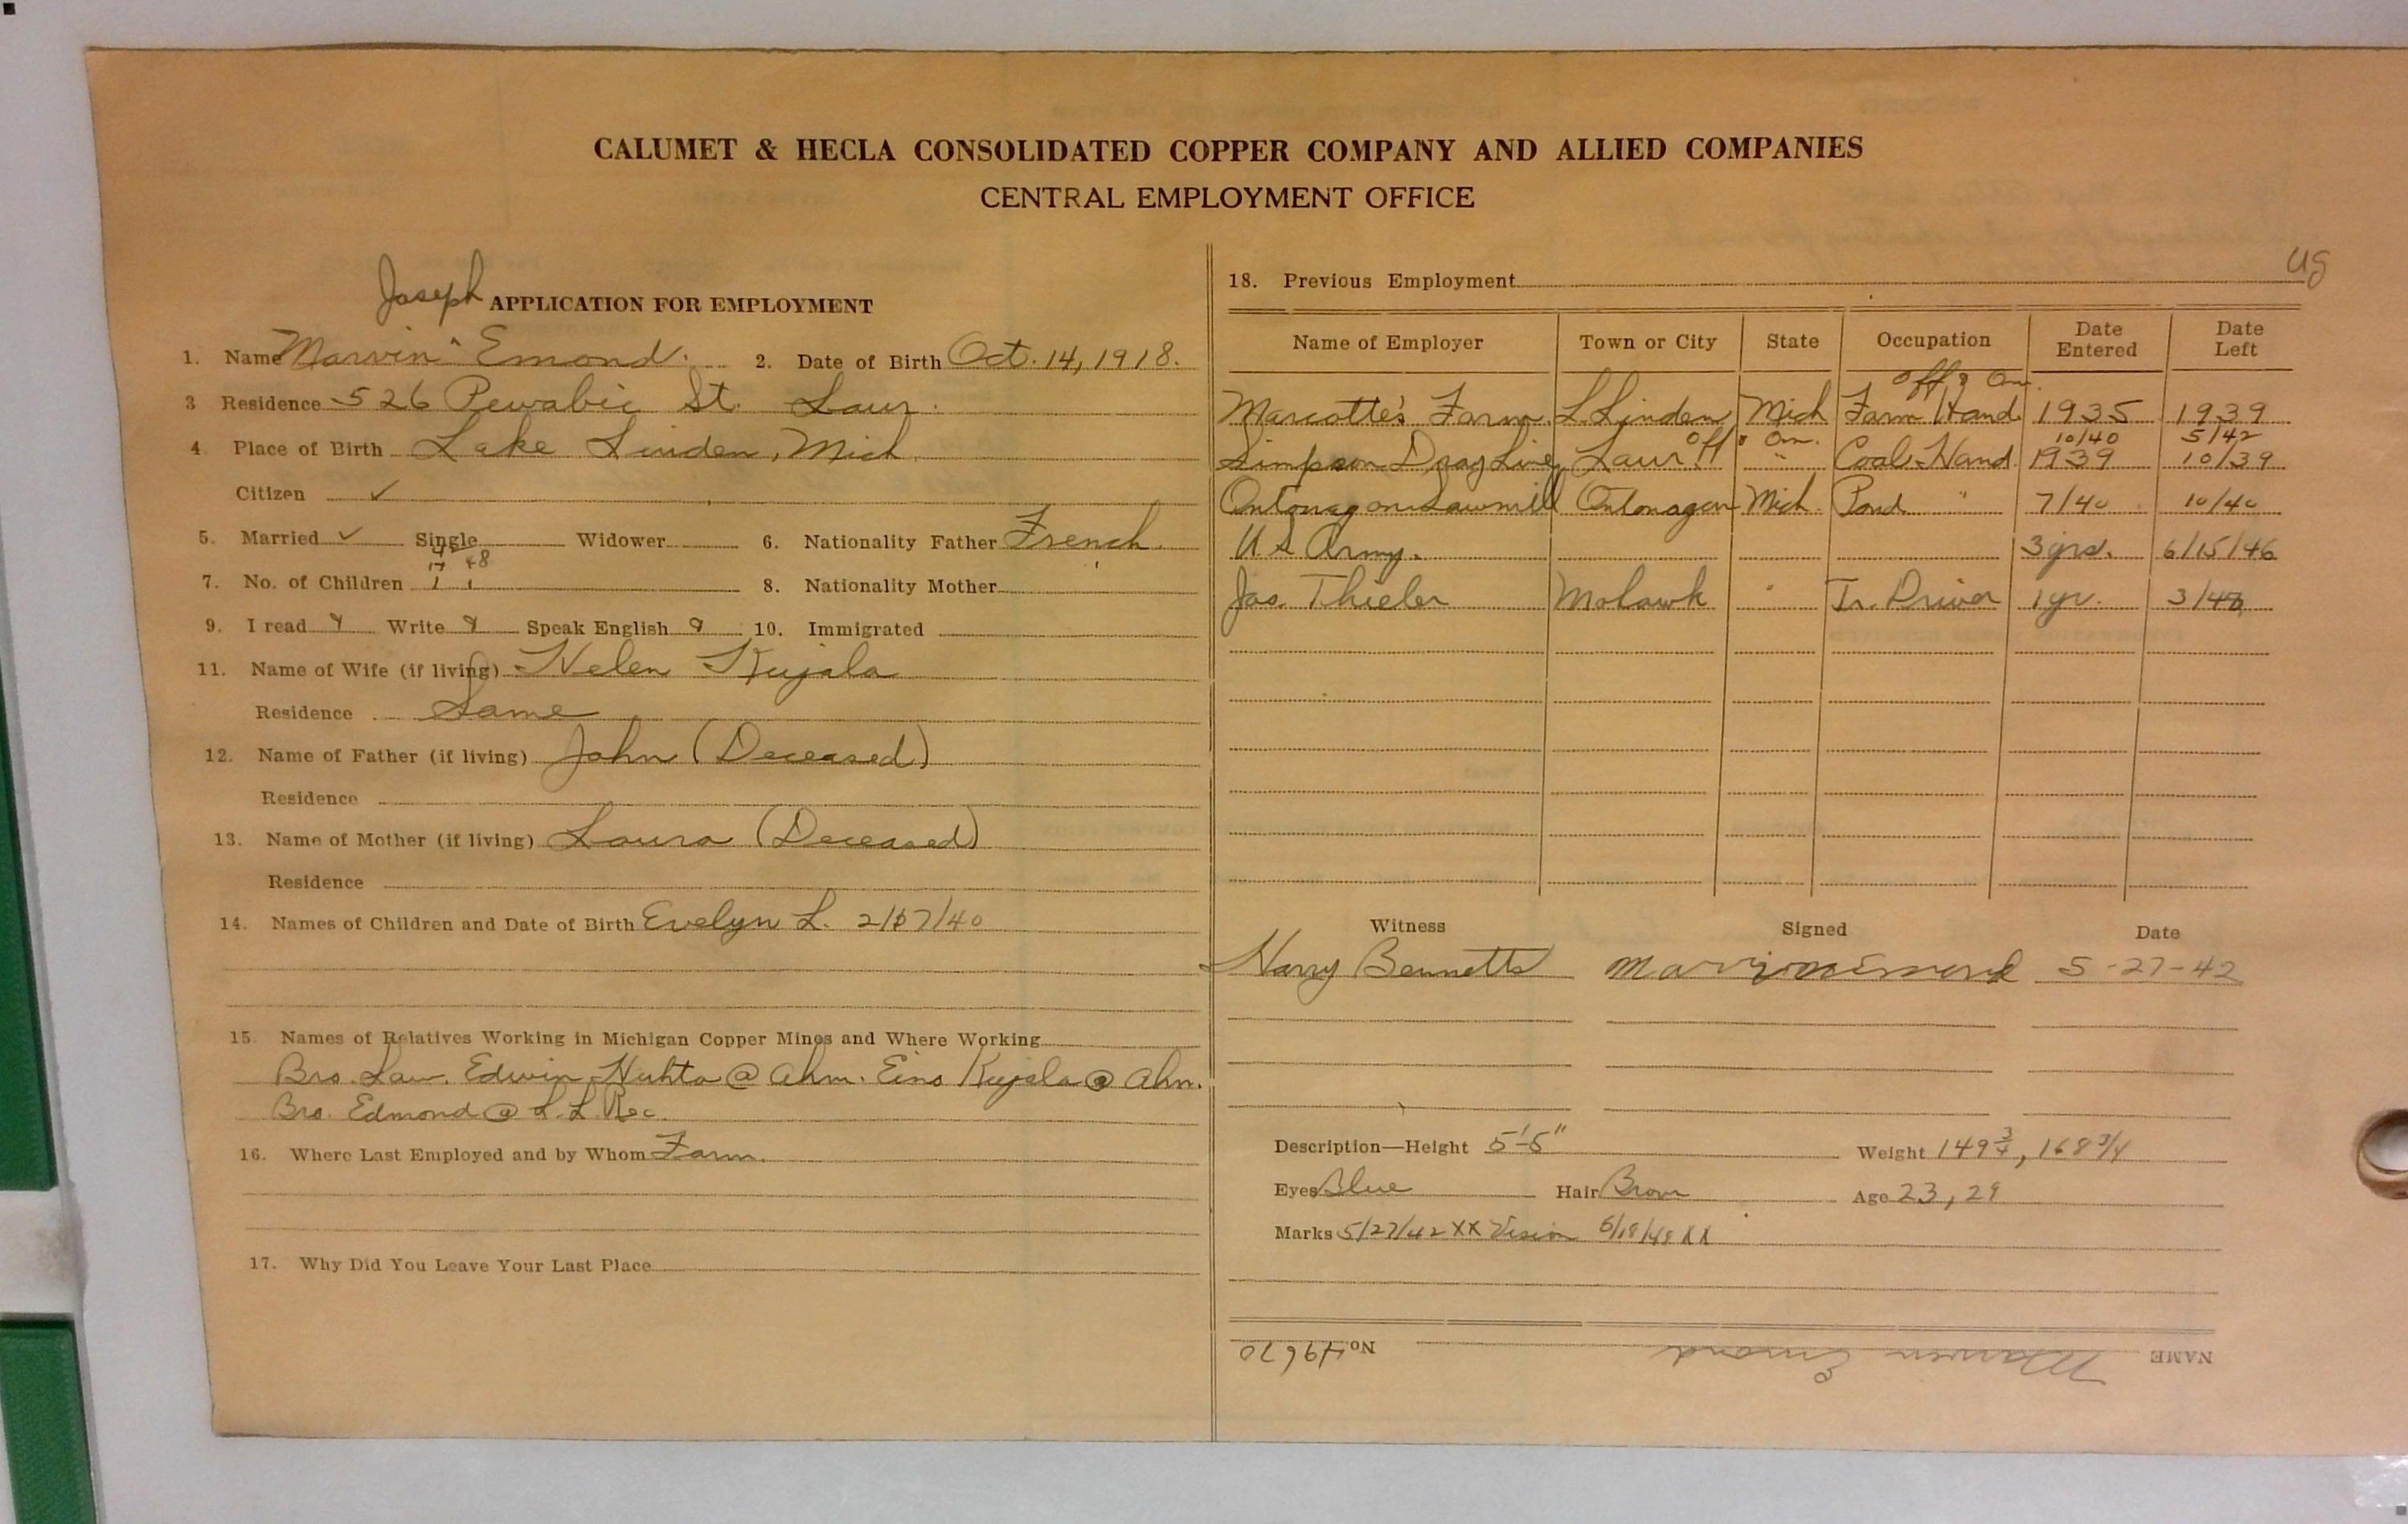 CALUMET & HECLA CONSOLIDATED COPPER COMPANY AND ALLIED COMPANIES
CENTRAL EMPLOYMENT OFFICE
Joseph
APPLICATION FOR EMPLOYMENT
1. Name Marvin ^ Emond. 2. Date of Birth Oct. 14, 1918.
3 Residence 526 Pewabic St. Laur.
4. Place of Birth Lake Linden, Mich.
Citizen ✓
5. Married ✓ Single Widower 6. Nationality Father French.
48
7. No. of Children 1 1 8. Nationality Mother
9. I read Write Speak English 10. Immigrated
11. Name of Wife (if living) Helen Kujala
Residence Same
12. Name of Father (if living) John (Deceased)
Residence
13. Name of Mother (if living) Laura (Deceased)
Residence
14. Names of Children and Date of Birth Evelyn L. 2/ 7/40
15. Names of Relatives Working in Michigan Copper Mines and Where Working
Bro. Law. Edwin Huhta @ Ahm. Eino Kujala @ Ahm.
Bro. Edmond @ L.L. Rec.
16. Where Last Employed and by Whom Farm.
17. Why Did You Leave Your Last Place
UG
18. Previous Employment
Name of Employer Town or City State Occupation Date Entered Date Left
off & On.
Marcotte's Farm. L Linden Mich Farm Hand 1935 1939
off & On. 10/40 5/42
Simpson Dray Line Laur. " Coal Hand. 1939 10/39
Ontonagon Sawmill Ontonagon Mich. Pond " 7/40 10/40
U S Army. 3 yrs. 6/15/46
Jas. Thieler Mohawk " Tr. Driver 1 yr. 3/48
Witness Signed Date
Harry Bennetts Marvin Emond 5-27-42
Description—Height 5'-5" Weight 149 3/4, 168 3/4
Eyes Blue Hair Brown Age 23, 29
Marks 5/27/42 XX Vision 6/18/48 XX
NAME Marvin Emond No. 49670